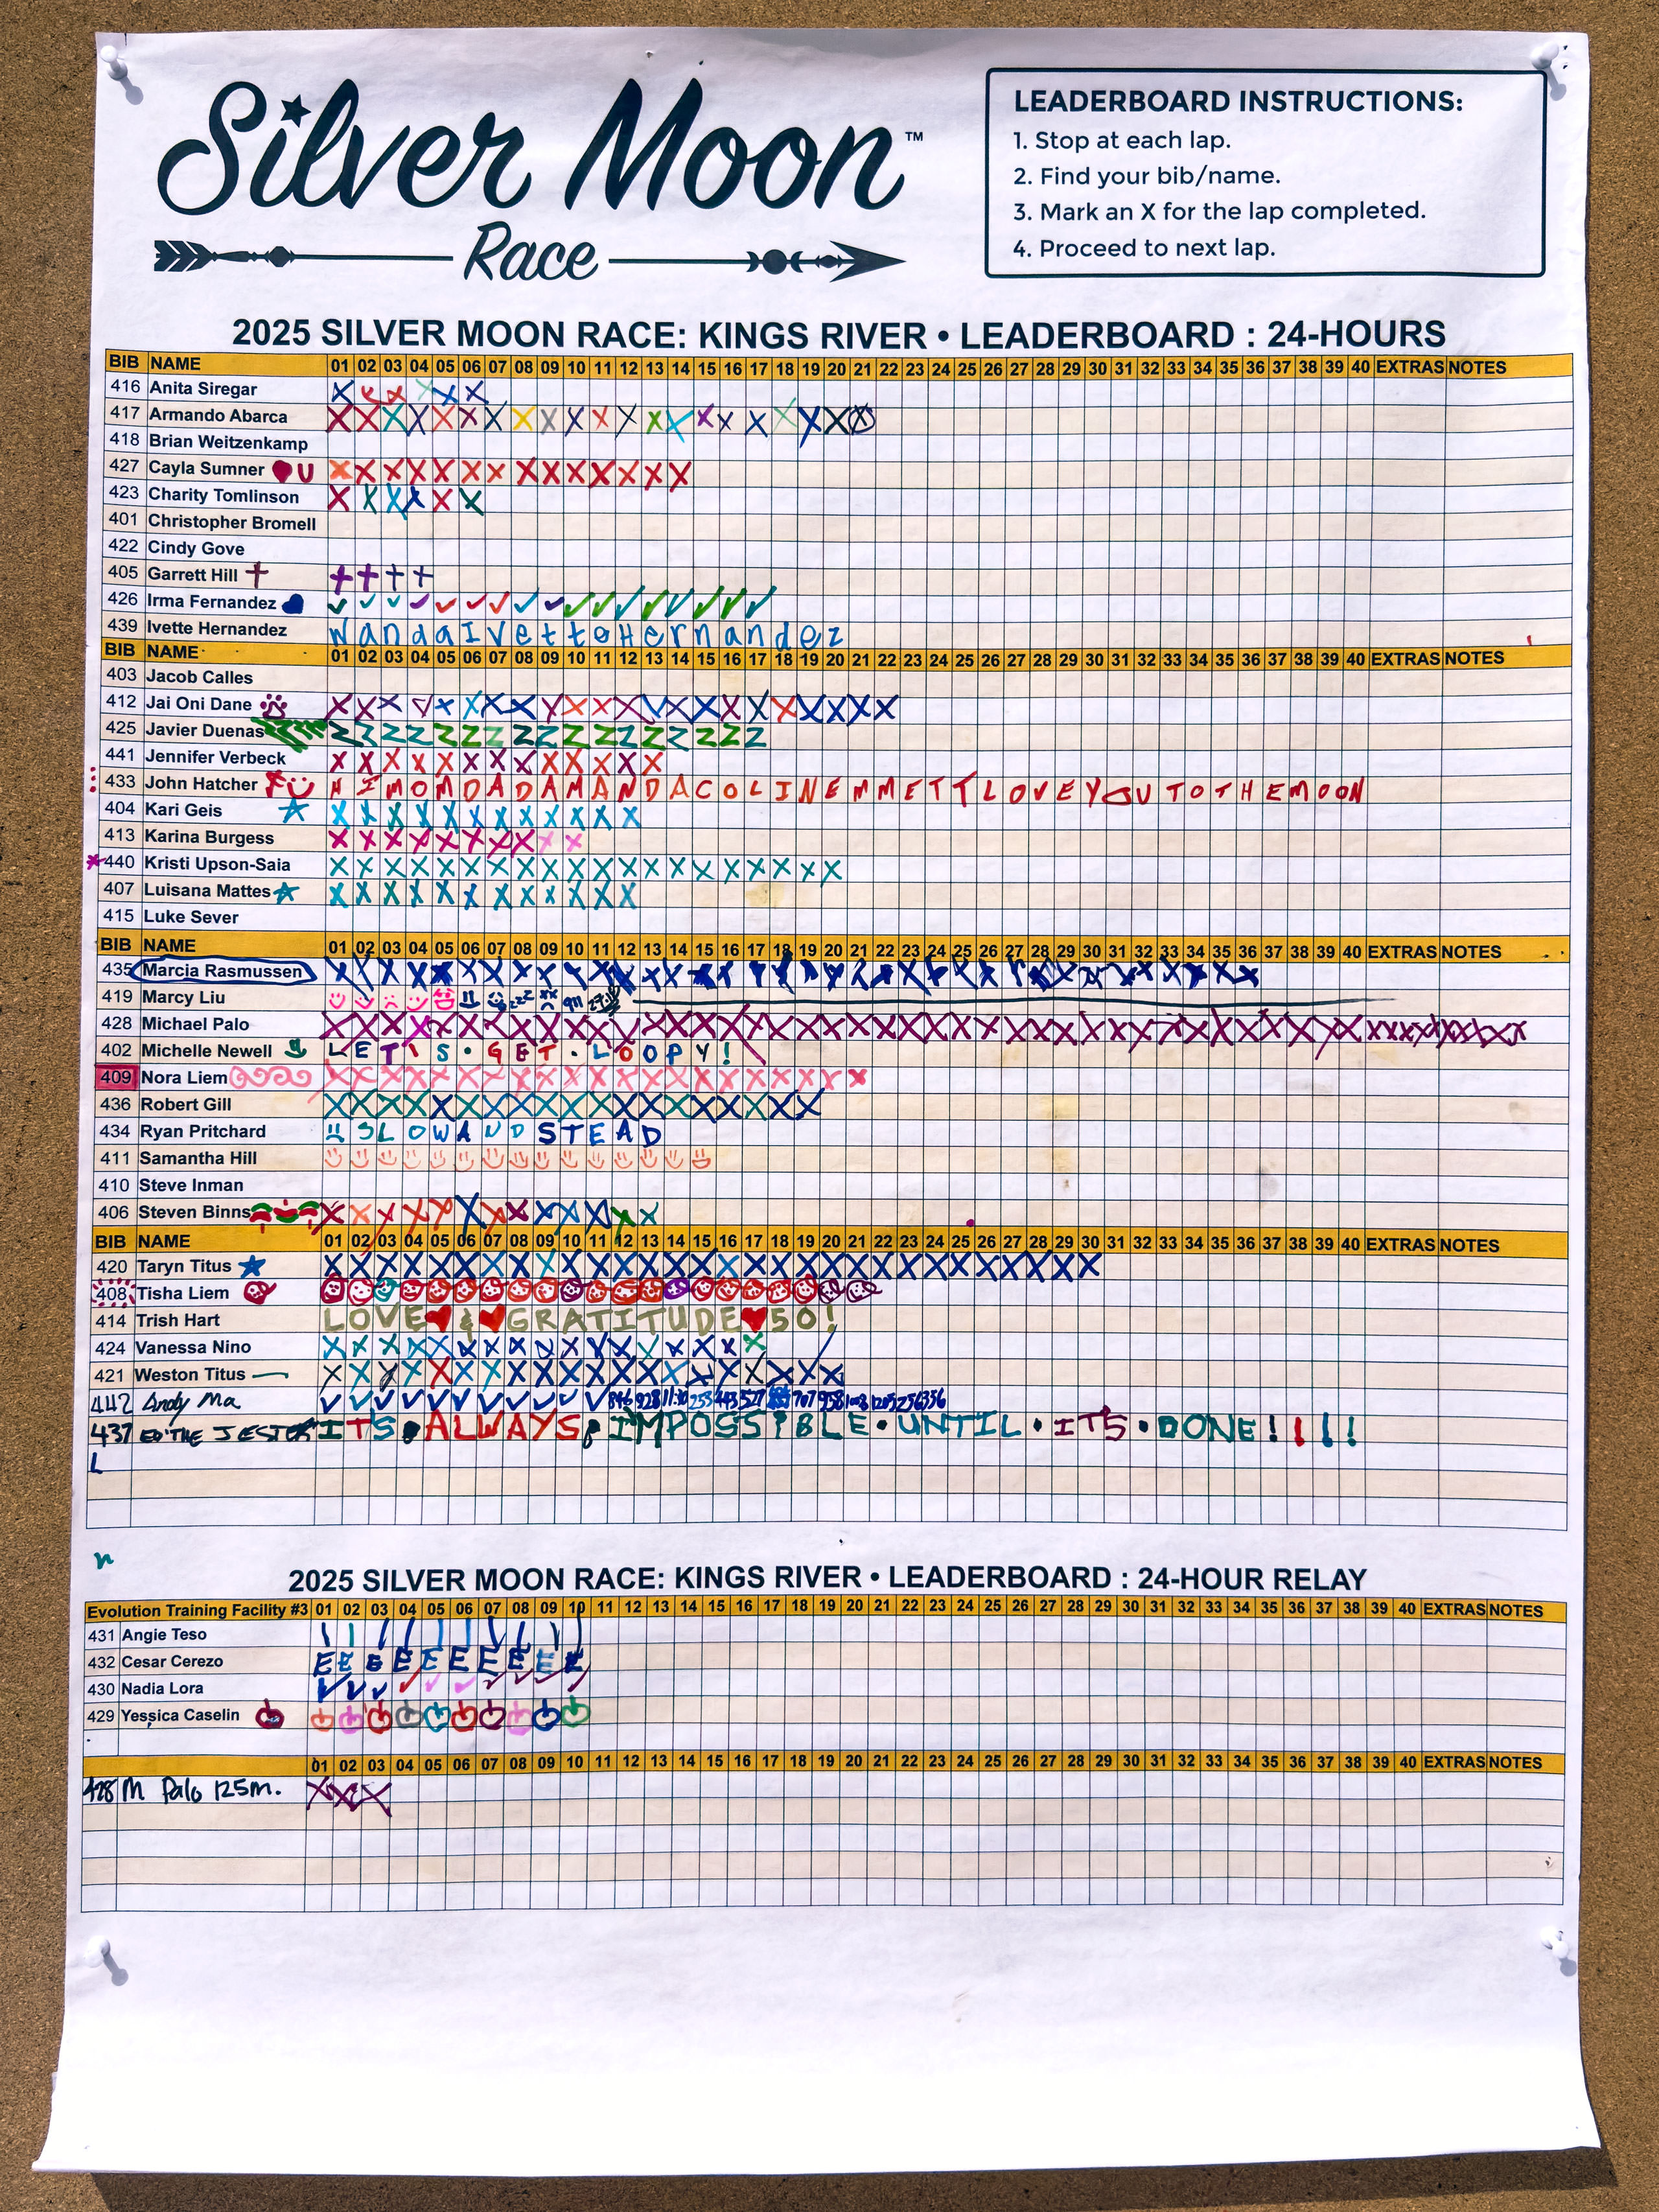 Silver Moon™
Race
LEADERBOARD INSTRUCTIONS:
1. Stop at each lap.
2. Find your bib/name.
3. Mark an X for the lap completed.
4. Proceed to next lap.
2025 SILVER MOON RACE: KINGS RIVER • LEADERBOARD : 24-HOURS
BIB NAME 01 02 03 04 05 06 07 08 09 10 11 12 13 14 15 16 17 18 19 20 21 22 23 24 25 26 27 28 29 30 31 32 33 34 35 36 37 38 39 40 EXTRAS NOTES
416 Anita Siregar X X X X X X
417 Armando Abarca X X X X X X X X X X X X X X X X X X X X X
418 Brian Weitzenkamp
427 Cayla Sumner U X X X X X X X X X X X X X X
423 Charity Tomlinson X X X X X X
401 Christopher Bromell
422 Cindy Gove
405 Garrett Hill
426 Irma Fernandez ✓ ✓ ✓ ✓ ✓ ✓ ✓ ✓ ✓ ✓ ✓ ✓ ✓ ✓ ✓ ✓ ✓
439 Ivette Hernandez W a n d a I v e t t e H e r n a n d e z
BIB NAME 01 02 03 04 05 06 07 08 09 10 11 12 13 14 15 16 17 18 19 20 21 22 23 24 25 26 27 28 29 30 31 32 33 34 35 36 37 38 39 40 EXTRAS NOTES
403 Jacob Calles
412 Jai Oni Dane X X X X X X X X X X X X X X X X X X X X X X
425 Javier Duenas Z Z Z Z Z Z Z Z Z Z Z Z Z Z Z Z Z
441 Jennifer Verbeck X X X X X X X X X X X X X
433 John Hatcher H I M O M D A D A M A N D A C O L I N E M M E T T L O V E Y O U T O T H E M O O N
404 Kari Geis X X X X X X X X X X X X
413 Karina Burgess X X X X X X X X X X
440 Kristi Upson-Saia X X X X X X X X X X X X X X X X X X X X
407 Luisana Mattes X X X X X X X X X X X X
415 Luke Sever
BIB NAME 01 02 03 04 05 06 07 08 09 10 11 12 13 14 15 16 17 18 19 20 21 22 23 24 25 26 27 28 29 30 31 32 33 34 35 36 37 38 39 40 EXTRAS NOTES
435 Marcia Rasmussen X X X X X X X X X X X X X X X X X X X X X X X X X X X X X X X X X X X X
419 Marcy Liu zzz 911
428 Michael Palo X X X X X X X X X X X X X X X X X X X X X X X X X X X X X X X X X X X X X X X X
402 Michelle Newell L E T ' S • G E T • L O O P Y !
409 Nora Liem X X X X X X X X X X X X X X X X X X X X X
436 Robert Gill X X X X X X X X X X X X X X X X X X X
434 Ryan Pritchard S L O W A N D S T E A D
411 Samantha Hill
410 Steve Inman
406 Steven Binns X X X X X X X X X X X X X
BIB NAME 01 02 03 04 05 06 07 08 09 10 11 12 13 14 15 16 17 18 19 20 21 22 23 24 25 26 27 28 29 30 31 32 33 34 35 36 37 38 39 40 EXTRAS NOTES
420 Taryn Titus X X X X X X X X X X X X X X X X X X X X X X X X X X X X X X
408 Tisha Liem
414 Trish Hart L O V E ♥ & ♥ G R A T I T U D E ♥ 5 0 !
424 Vanessa Nino X X X X X X X X X X X X X X X X X
421 Weston Titus X X X X X X X X X X X X X X X X X X X X
442 Andy Ma ✓ ✓ ✓ ✓ ✓ ✓ ✓ ✓ ✓ ✓ ✓ 846 928 253 443 527 707 958 1205 256 356
437 ED THE JESTER IT'S • ALWAYS • IMPOSSIBLE • UNTIL • IT'S • DONE ! ! ! !
L
2025 SILVER MOON RACE: KINGS RIVER • LEADERBOARD : 24-HOUR RELAY
Evolution Training Facility #3 01 02 03 04 05 06 07 08 09 10 11 12 13 14 15 16 17 18 19 20 21 22 23 24 25 26 27 28 29 30 31 32 33 34 35 36 37 38 39 40 EXTRAS NOTES
431 Angie Teso
432 Cesar Cerezo E E E E E E E E E E
430 Nadia Lora ✓ ✓ ✓ ✓ ✓ ✓ ✓ ✓ ✓ ✓
429 Yessica Caselin
01 02 03 04 05 06 07 08 09 10 11 12 13 14 15 16 17 18 19 20 21 22 23 24 25 26 27 28 29 30 31 32 33 34 35 36 37 38 39 40 EXTRAS NOTES
428 M Palo 125m. X X X